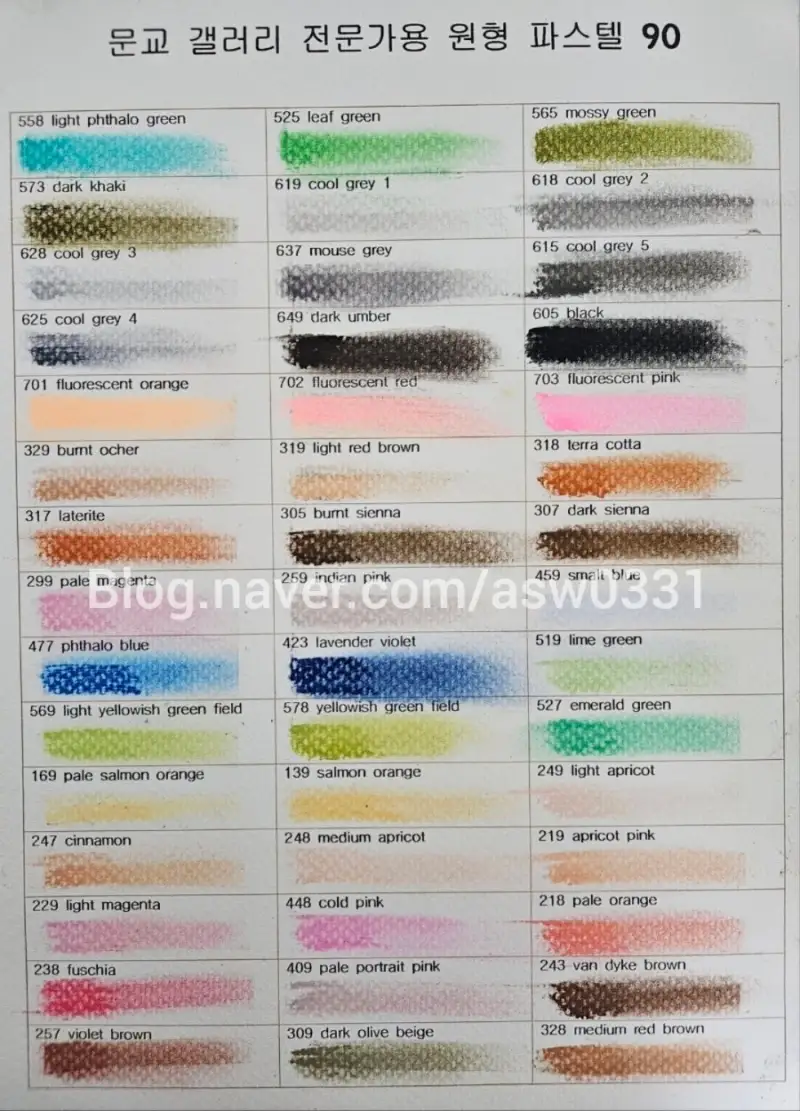 문교 갤러리 전문가용 원형 파스텔 90
558 light phthalo green 525 leaf green 565 mossy green
573 dark khaki 619 cool grey 1 618 cool grey 2
628 cool grey 3 637 mouse grey 615 cool grey 5
625 cool grey 4 649 dark umber 605 black
701 fluorescent orange 702 fluorescent red 703 fluorescent pink
329 burnt ocher 319 light red brown 318 terra cotta
317 laterite 305 burnt sienna 307 dark sienna
299 pale magenta 259 indian pink 459 small blue
Blog.naver.com/asw0331
477 phthalo blue 423 lavender violet 519 lime green
569 light yellowish green field 578 yellowish green field 527 emerald green
169 pale salmon orange 139 salmon orange 249 light apricot
247 cinnamon 248 medium apricot 219 apricot pink
229 light magenta 448 cold pink 218 pale orange
238 fuschia 409 pale portrait pink 243 van dyke brown
257 violet brown 309 dark olive beige 328 medium red brown